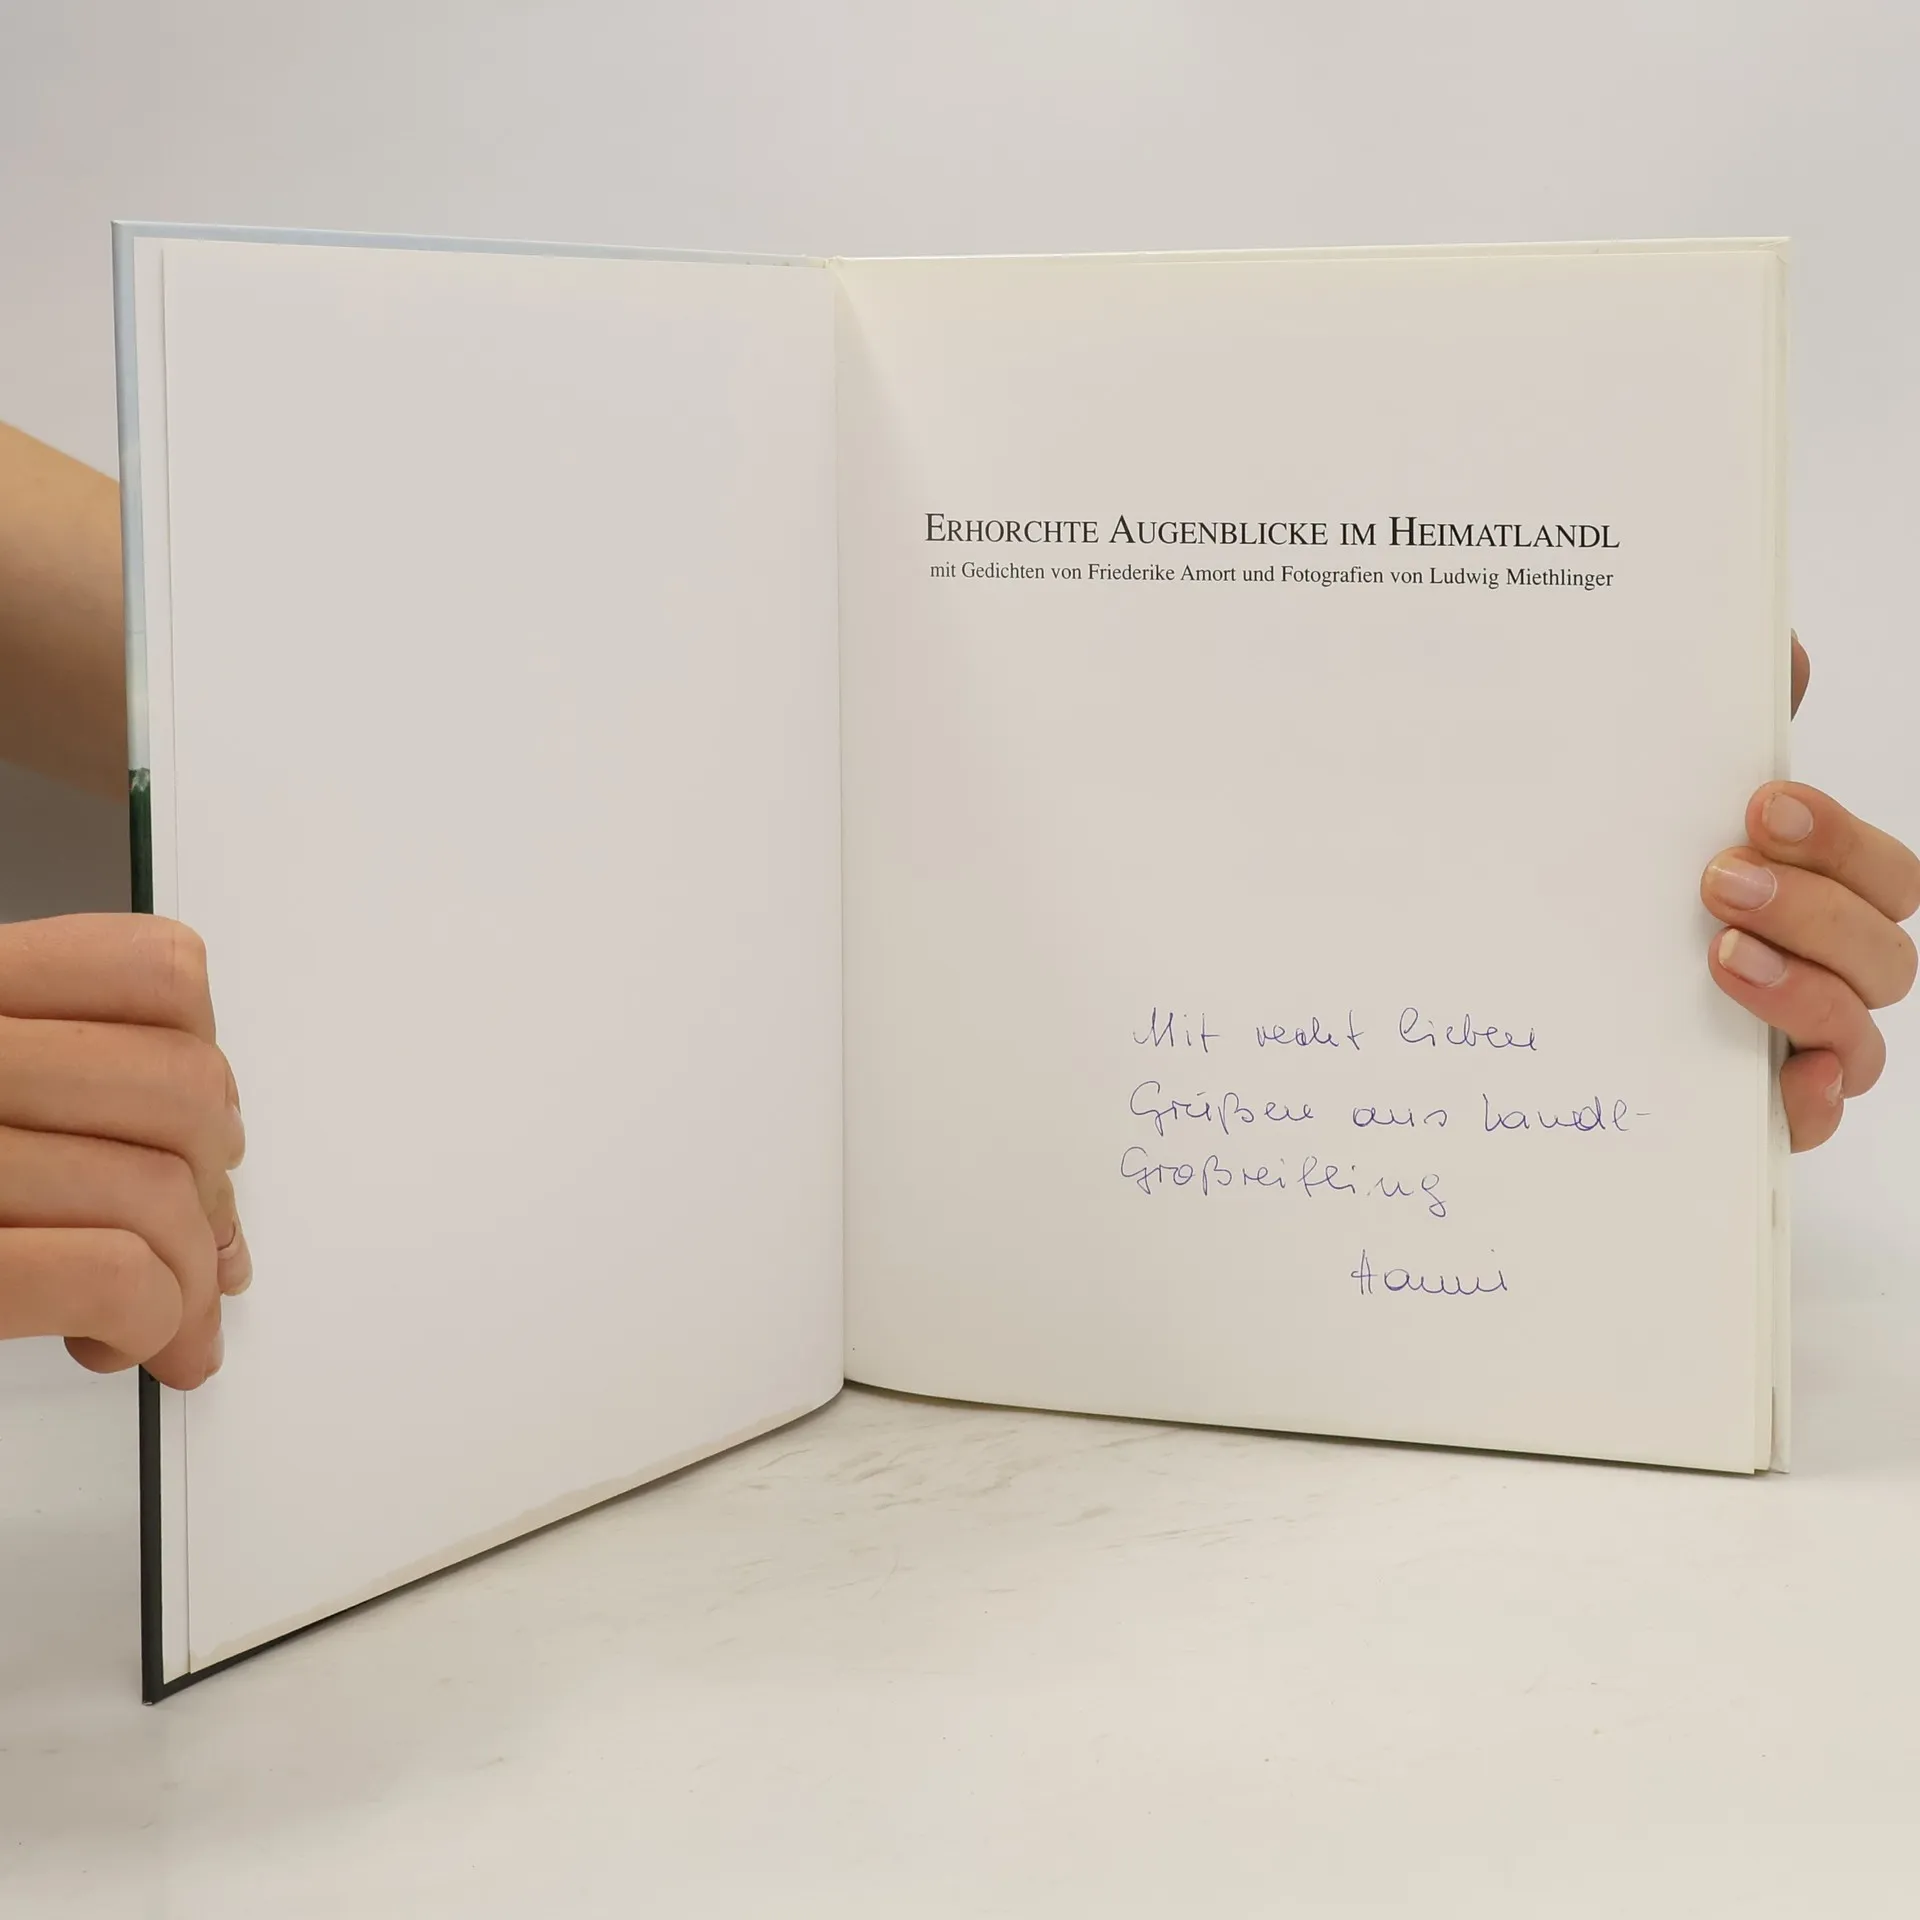 ERHORCHTE AUGENBLICKE IM HEIMATLANDL
mit Gedichten von Friederike Amort und Fotografien von Ludwig Miethlinger
Mit recht lieben
Grüßen aus Landl-
Großreifling
Hanni